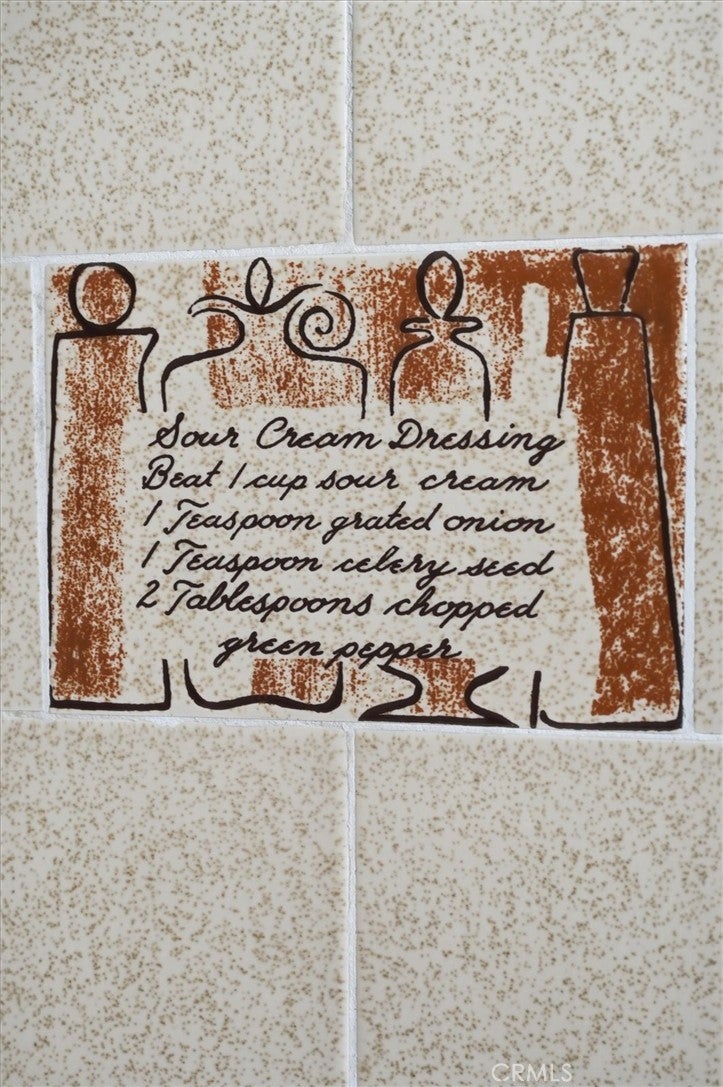 Sour Cream Dressing
Beat 1 cup sour cream
1 Teaspoon grated onion
1 Teaspoon celery seed
2 Tablespoons chopped
green pepper
CRMLS